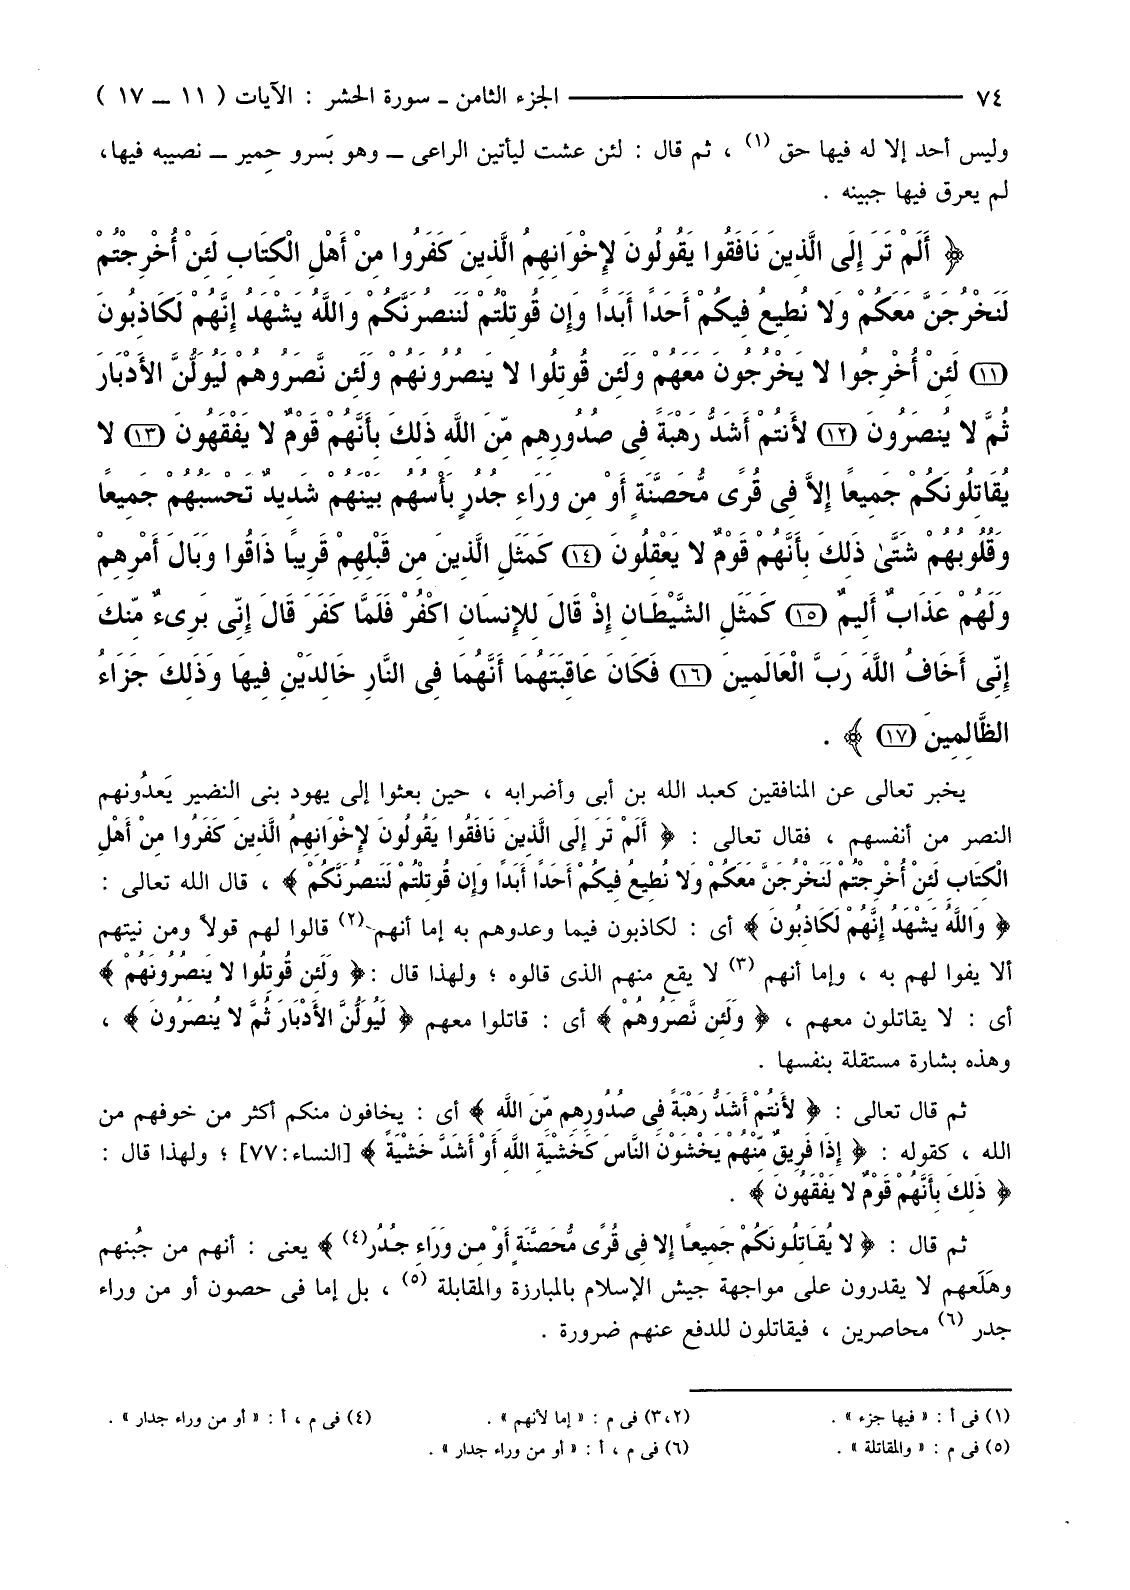 ٧٤ ــــــــــــــــــــــــــــــــ الجزء الثامن ـ سورة الحشر : الآيات ( ١١ ــ ١٧ )
وليس أحد إلا له فيها حق (١) ، ثم قال : لئن عشت ليأتين الراعى ــ وهو بَسرو حِمير ــ نصيبه فيها،
لم يعرق فيها جبينه .
﴿ أَلَمْ تَرَ إِلَى الَّذِينَ نَافَقُوا يَقُولُونَ لإِخْوَانِهِمُ الَّذِينَ كَفَرُوا مِنْ أَهْلِ الْكِتَابِ لَئِنْ أُخْرِجْتُمْ
لَنَخْرُجَنَّ مَعَكُمْ وَلا نُطِيعُ فِيكُمْ أَحَدًا أَبَدًا وَإِن قُوتِلْتُمْ لَنَنصُرَنَّكُمْ وَاللَّهُ يَشْهَدُ إِنَّهُمْ لَكَاذِبُونَ
(١١) لَئِنْ أُخْرِجُوا لا يَخْرُجُونَ مَعَهُمْ وَلَئِن قُوتِلُوا لا يَنصُرُونَهُمْ وَلَئِن نَّصَرُوهُمْ لَيُوَلُّنَّ الأَدْبَارَ
ثُمَّ لا يُنصَرُونَ (١٢) لأَنتُمْ أَشَدُّ رَهْبَةً فِى صُدُورِهِم مِّنَ اللَّهِ ذَلِكَ بِأَنَّهُمْ قَوْمٌ لا يَفْقَهُونَ (١٣) لا
يُقَاتِلُونَكُمْ جَمِيعًا إِلاَّ فِى قُرًى مُّحَصَّنَةٍ أَوْ مِن وَرَاءِ جُدُرٍ بَأْسُهُم بَيْنَهُمْ شَدِيدٌ تَحْسَبُهُمْ جَمِيعًا
وَقُلُوبُهُمْ شَتَّىٰ ذَلِكَ بِأَنَّهُمْ قَوْمٌ لا يَعْقِلُونَ (١٤) كَمَثَلِ الَّذِينَ مِن قَبْلِهِمْ قَرِيبًا ذَاقُوا وَبَالَ أَمْرِهِمْ
وَلَهُمْ عَذَابٌ أَلِيمٌ (١٥) كَمَثَلِ الشَّيْطَانِ إِذْ قَالَ لِلإِنسَانِ اكْفُرْ فَلَمَّا كَفَرَ قَالَ إِنِّى بَرِىءٌ مِّنكَ
إِنِّى أَخَافُ اللَّهَ رَبَّ الْعَالَمِينَ (١٦) فَكَانَ عَاقِبَتَهُمَا أَنَّهُمَا فِى النَّارِ خَالِدَيْنِ فِيهَا وَذَلِكَ جَزَاءُ
الظَّالِمِينَ (١٧) ﴾ .
يخبر تعالى عن المنافقين كعبد الله بن أبى وأضرابه ، حين بعثوا إلى يهود بنى النضير يَعدُونهم
النصر من أنفسهم ، فقال تعالى : ﴿ أَلَمْ تَرَ إِلَى الَّذِينَ نَافَقُوا يَقُولُونَ لإِخْوَانِهِمُ الَّذِينَ كَفَرُوا مِنْ أَهْلِ
الْكِتَابِ لَئِنْ أُخْرِجْتُمْ لَنَخْرُجَنَّ مَعَكُمْ وَلا نُطِيعُ فِيكُمْ أَحَدًا أَبَدًا وَإِن قُوتِلْتُمْ لَنَنصُرَنَّكُمْ ﴾ ، قال الله تعالى :
﴿ وَاللَّهُ يَشْهَدُ إِنَّهُمْ لَكَاذِبُونَ ﴾ أى : لكاذبون فيما وعدوهم به إما أنهم (٢) قالوا لهم قولاً ومن نيتهم
ألا يفوا لهم به ، وإما أنهم (٣) لا يقع منهم الذى قالوه ؛ ولهذا قال : ﴿ وَلَئِن قُوتِلُوا لا يَنصُرُونَهُمْ ﴾
أى : لا يقاتلون معهم ، ﴿ وَلَئِن نَّصَرُوهُمْ ﴾ أى : قاتلوا معهم ﴿ لَيُوَلُّنَّ الأَدْبَارَ ثُمَّ لا يُنصَرُونَ ﴾ ،
وهذه بشارة مستقلة بنفسها .
ثم قال تعالى : ﴿ لأَنتُمْ أَشَدُّ رَهْبَةً فِى صُدُورِهِم مِّنَ اللَّهِ ﴾ أى : يخافون منكم أكثر من خوفهم من
الله ، كقوله : ﴿ إِذَا فَرِيقٌ مِّنْهُمْ يَخْشَوْنَ النَّاسَ كَخَشْيَةِ اللَّهِ أَوْ أَشَدَّ خَشْيَةً ﴾ [النساء:٧٧] ؛ ولهذا قال :
﴿ ذَلِكَ بِأَنَّهُمْ قَوْمٌ لا يَفْقَهُونَ ﴾ .
ثم قال : ﴿ لا يُقَاتِلُونَكُمْ جَمِيعًا إِلا فِى قُرًى مُّحَصَّنَةٍ أَوْ مِن وَرَاءِ جُدُرٍ(٤) ﴾ يعنى : أنهم من جبُنهم
وهَلَعهم لا يقدرون على مواجهة جيش الإسلام بالمبارزة والمقابلة (٥) ، بل إما فى حصون أو من وراء
جدر (٦) محاصرين ، فيقاتلون للدفع عنهم ضرورة .
(١) فى أ : « فيها جزء » . (٢،٣) فى م : « إما لأنهم » . (٤) فى م ، أ : « أو من وراء جدار » .
(٥) فى م : « والمقاتلة » . (٦) فى م ، أ : « أو من وراء جدار » .